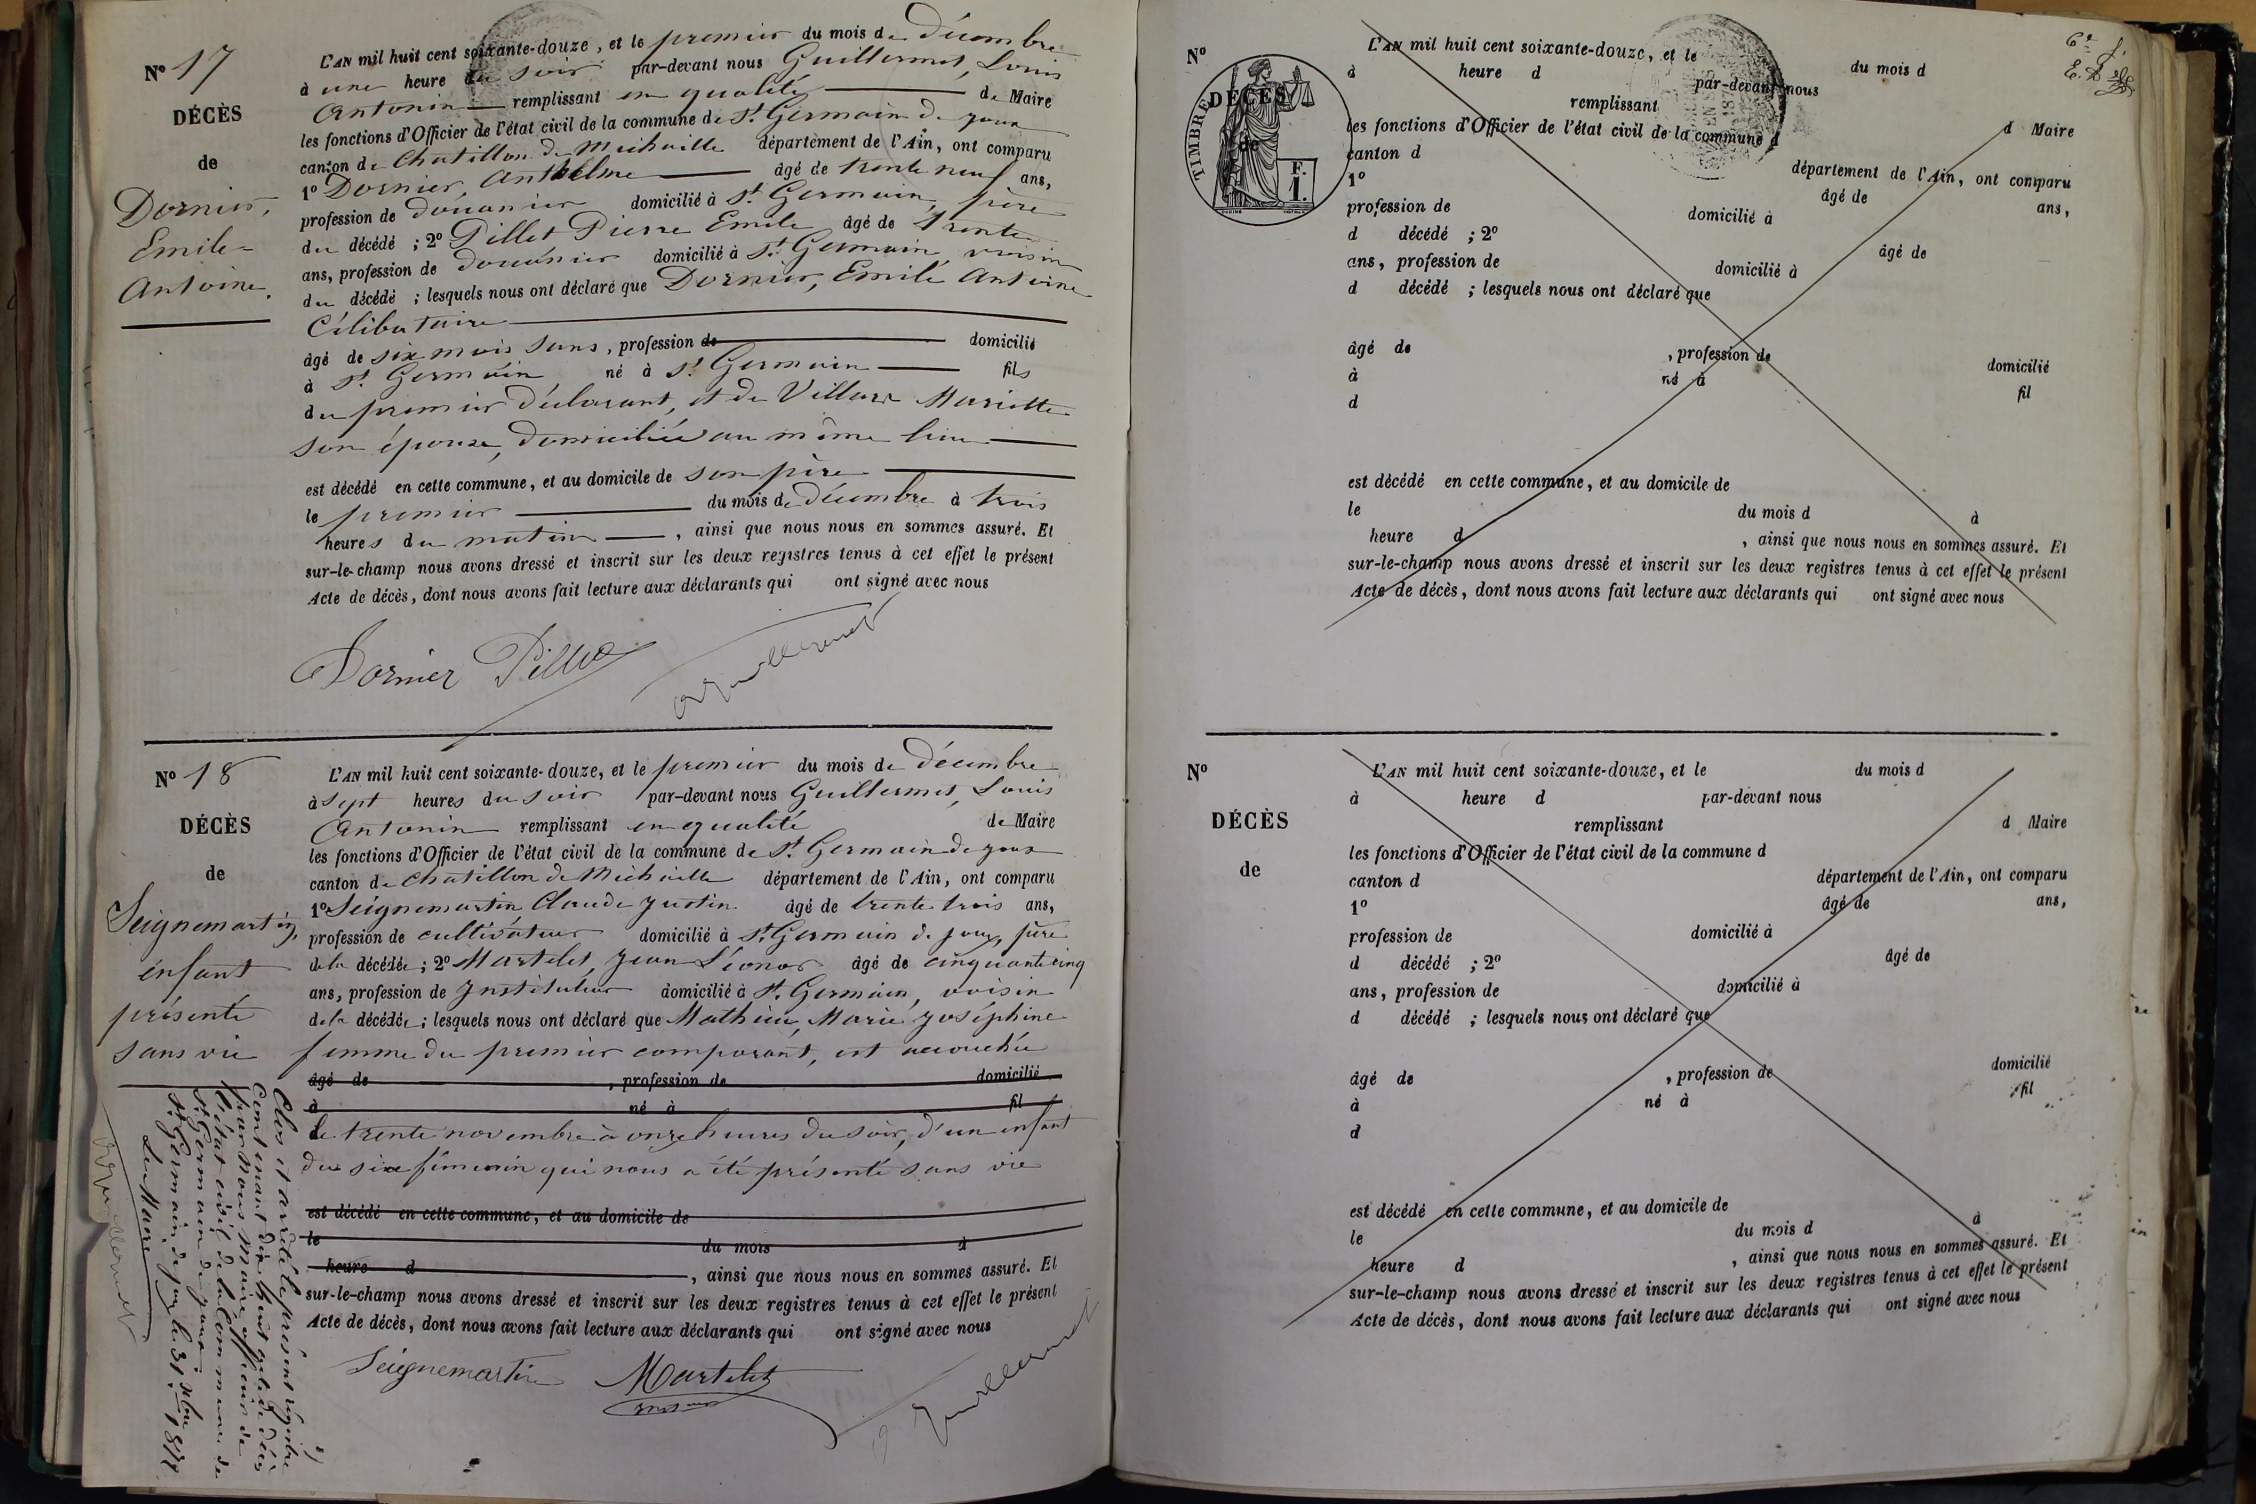 Nº 17
DÉCÈS
de
Dornier,
Emile-
Antoine.
L'AN mil huit cent soixante-douze, et le premier du mois de Décembre
à une heure du soir par-devant nous Guillermet, Louis
Antonin remplissant en qualité de Maire
les fonctions d'Officier de l'état civil de la commune de St. Germain de joux
canton de Chatillon de Michaille département de l'Ain, ont comparu
1º Dornier, Anthelme âgé de trente neuf ans,
profession de douanier domicilié à St. Germain, père
du décédé ; 2º Pillet Pierre Emile âgé de trente
ans, profession de douanier domicilié à St. Germain, voisin
du décédé ; lesquels nous ont déclaré que Dornier, Emile Antoine
Célibataire
âgé de six mois sans, profession de domicilié
à St. Germain né à St. Germain fils
du premier déclarant, et de Villard Mariette
son épouse, domiciliée au même lieu
est décédé en cette commune, et au domicile de son père
le premier du mois de décembre à trois
heures du matin, ainsi que nous nous en sommes assuré. Et
sur-le-champ nous avons dressé et inscrit sur les deux registres tenus à cet effet le présent
Acte de décès, dont nous avons fait lecture aux déclarants qui ont signé avec nous
Dornier Pillet Guillermet
Nº 18
DÉCÈS
de
Seignemartin,
enfant
présenté
sans vie
L'AN mil huit cent soixante-douze, et le premier du mois de Décembre
à sept heures du soir par-devant nous Guillermet, Louis
Antonin remplissant en qualité de Maire
les fonctions d'Officier de l'état civil de la commune de St. Germain de joux
canton de Chatillon de Michaille département de l'Ain, ont comparu
1º Seignemartin Claude Justin âgé de trente trois ans,
profession de cultivateur domicilié à St. Germain de joux, père
de la décédée ; 2º Martelet, Jean Léonor âgé de cinquante cinq
ans, profession de Instituteur domicilié à St. Germain, voisin
de la décédée ; lesquels nous ont déclaré que Mathieu, Marie Joséphine
femme du premier comparant, est accouchée
âgé de , profession de domicilié
à né à fil
le trente novembre à onze heures du soir, d'un enfant
du sexe féminin qui nous a été présenté sans vie
est décédé en cette commune, et au domicile de
le du mois d
heure d , ainsi que nous nous en sommes assuré. Et
sur-le-champ nous avons dressé et inscrit sur les deux registres tenus à cet effet le présent
Acte de décès, dont nous avons fait lecture aux déclarants qui ont signé avec nous
Seignemartin Martelet Guillermet
Clos et arrêté le présent registre
Contenant dix huit actes de décès
par nous maire, officier de
l'état civil de la commune de
St. Germain de joux.
St. Germain de joux le 31 Xbre 1872
Le Maire
Guillermet
6e f.
Nº
TIMBRE
F.
1.
DÉCÈS
de
L'AN mil huit cent soixante-douze, et le du mois d
à heure d par-devant nous
remplissant d Maire
les fonctions d'Officier de l'état civil de la commune d
canton d département de l'Ain, ont comparu
1º âgé de ans,
profession de domicilié à
d décédé ; 2º âgé de
ans, profession de domicilié à
d décédé ; lesquels nous ont déclaré que
âgé de , profession de domicilié
à né à fil
d
est décédé en cette commune, et au domicile de
le du mois d à
heure d , ainsi que nous nous en sommes assuré. Et
sur-le-champ nous avons dressé et inscrit sur les deux registres tenus à cet effet le présent
Acte de décès, dont nous avons fait lecture aux déclarants qui ont signé avec nous
Nº
DÉCÈS
de
L'AN mil huit cent soixante-douze, et le du mois d
à heure d par-devant nous
remplissant d Maire
les fonctions d'Officier de l'état civil de la commune d
canton d département de l'Ain, ont comparu
1º âgé de ans,
profession de domicilié à
d décédé ; 2º âgé de
ans, profession de domicilié à
d décédé ; lesquels nous ont déclaré que
âgé de , profession de domicilié
à né à fil
d
est décédé en cette commune, et au domicile de
le du mois d à
heure d , ainsi que nous nous en sommes assuré. Et
sur-le-champ nous avons dressé et inscrit sur les deux registres tenus à cet effet le présent
Acte de décès, dont nous avons fait lecture aux déclarants qui ont signé avec nous